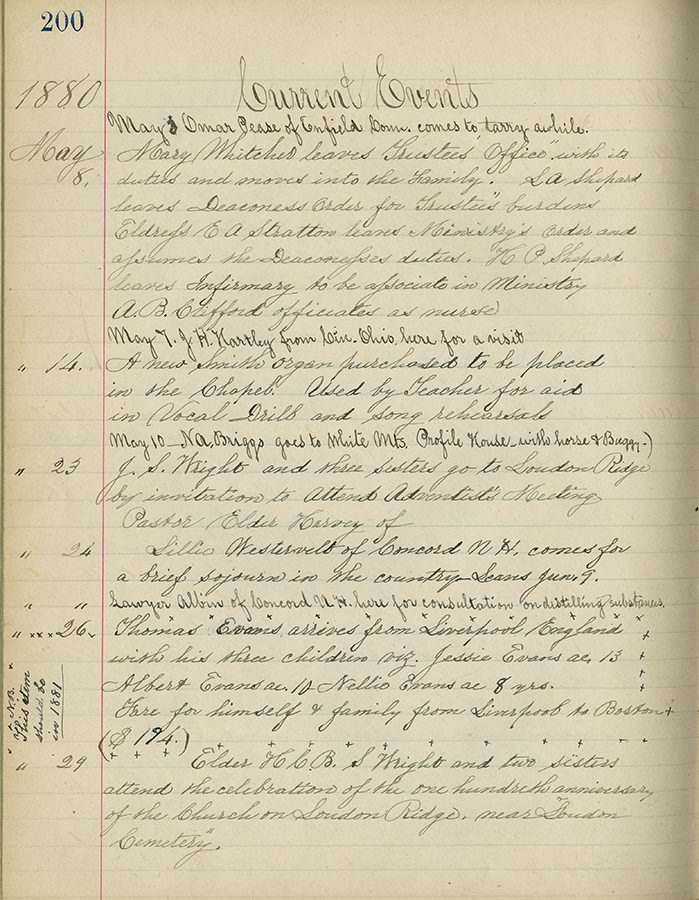 200
1880 Current Events
May 3 Omar Pease of Enfield Conn. comes to tarry awhile.
May 8. Mary Whitcher leaves Trustees' Office" with its
duties and moves into the Family. S A Shepard
leaves Deaconess Order for Trustee's burdens
Eldress E A Stratton leaves Ministry's Order and
assumes the Deaconesses duties. H P Shepard
leaves Infirmary to be associate in Ministry
A. B. Clifford officiates as nurse
May 7. J H. Hartley from Cin. Ohio, here for a visit
" 14. A new Smith Organ purchased to be placed
in the Chapel. Used by Teacher for aid
in Vocal Drill and song rehearsals
May 10 - NA. Briggs goes to White Mts. Profile House - with horse & Buggy.)
" 23 J. S. Wright and three sisters go to Loudon Ridge
by invitation to Attend Adventist's Meeting
Pastor Elder Harvey of
" 24 Lillie Westervelt of Concord N H. comes for
a brief sojourn in the country - Leaves Jun. 9.
" " Lawyer Albin of Concord N H. here for consultation on distilling substances.
" xxx 26. Thomas Evans, arrives from Liverpool England
with his three children viz. Jessie Evans ae. 13
Albert Evans ae. 10 Nellie Evans ae 8 yrs.
Fare for himself & family from Liverpool to Boston +
($ 194.)
N.B.
This item
should be
in 1881
" 29 Elder H C B. S Wright and two sisters
attend the celebration of the one hundreth anniversary
of the Church on Loudon Ridge. near "Loudon
Cemetery".